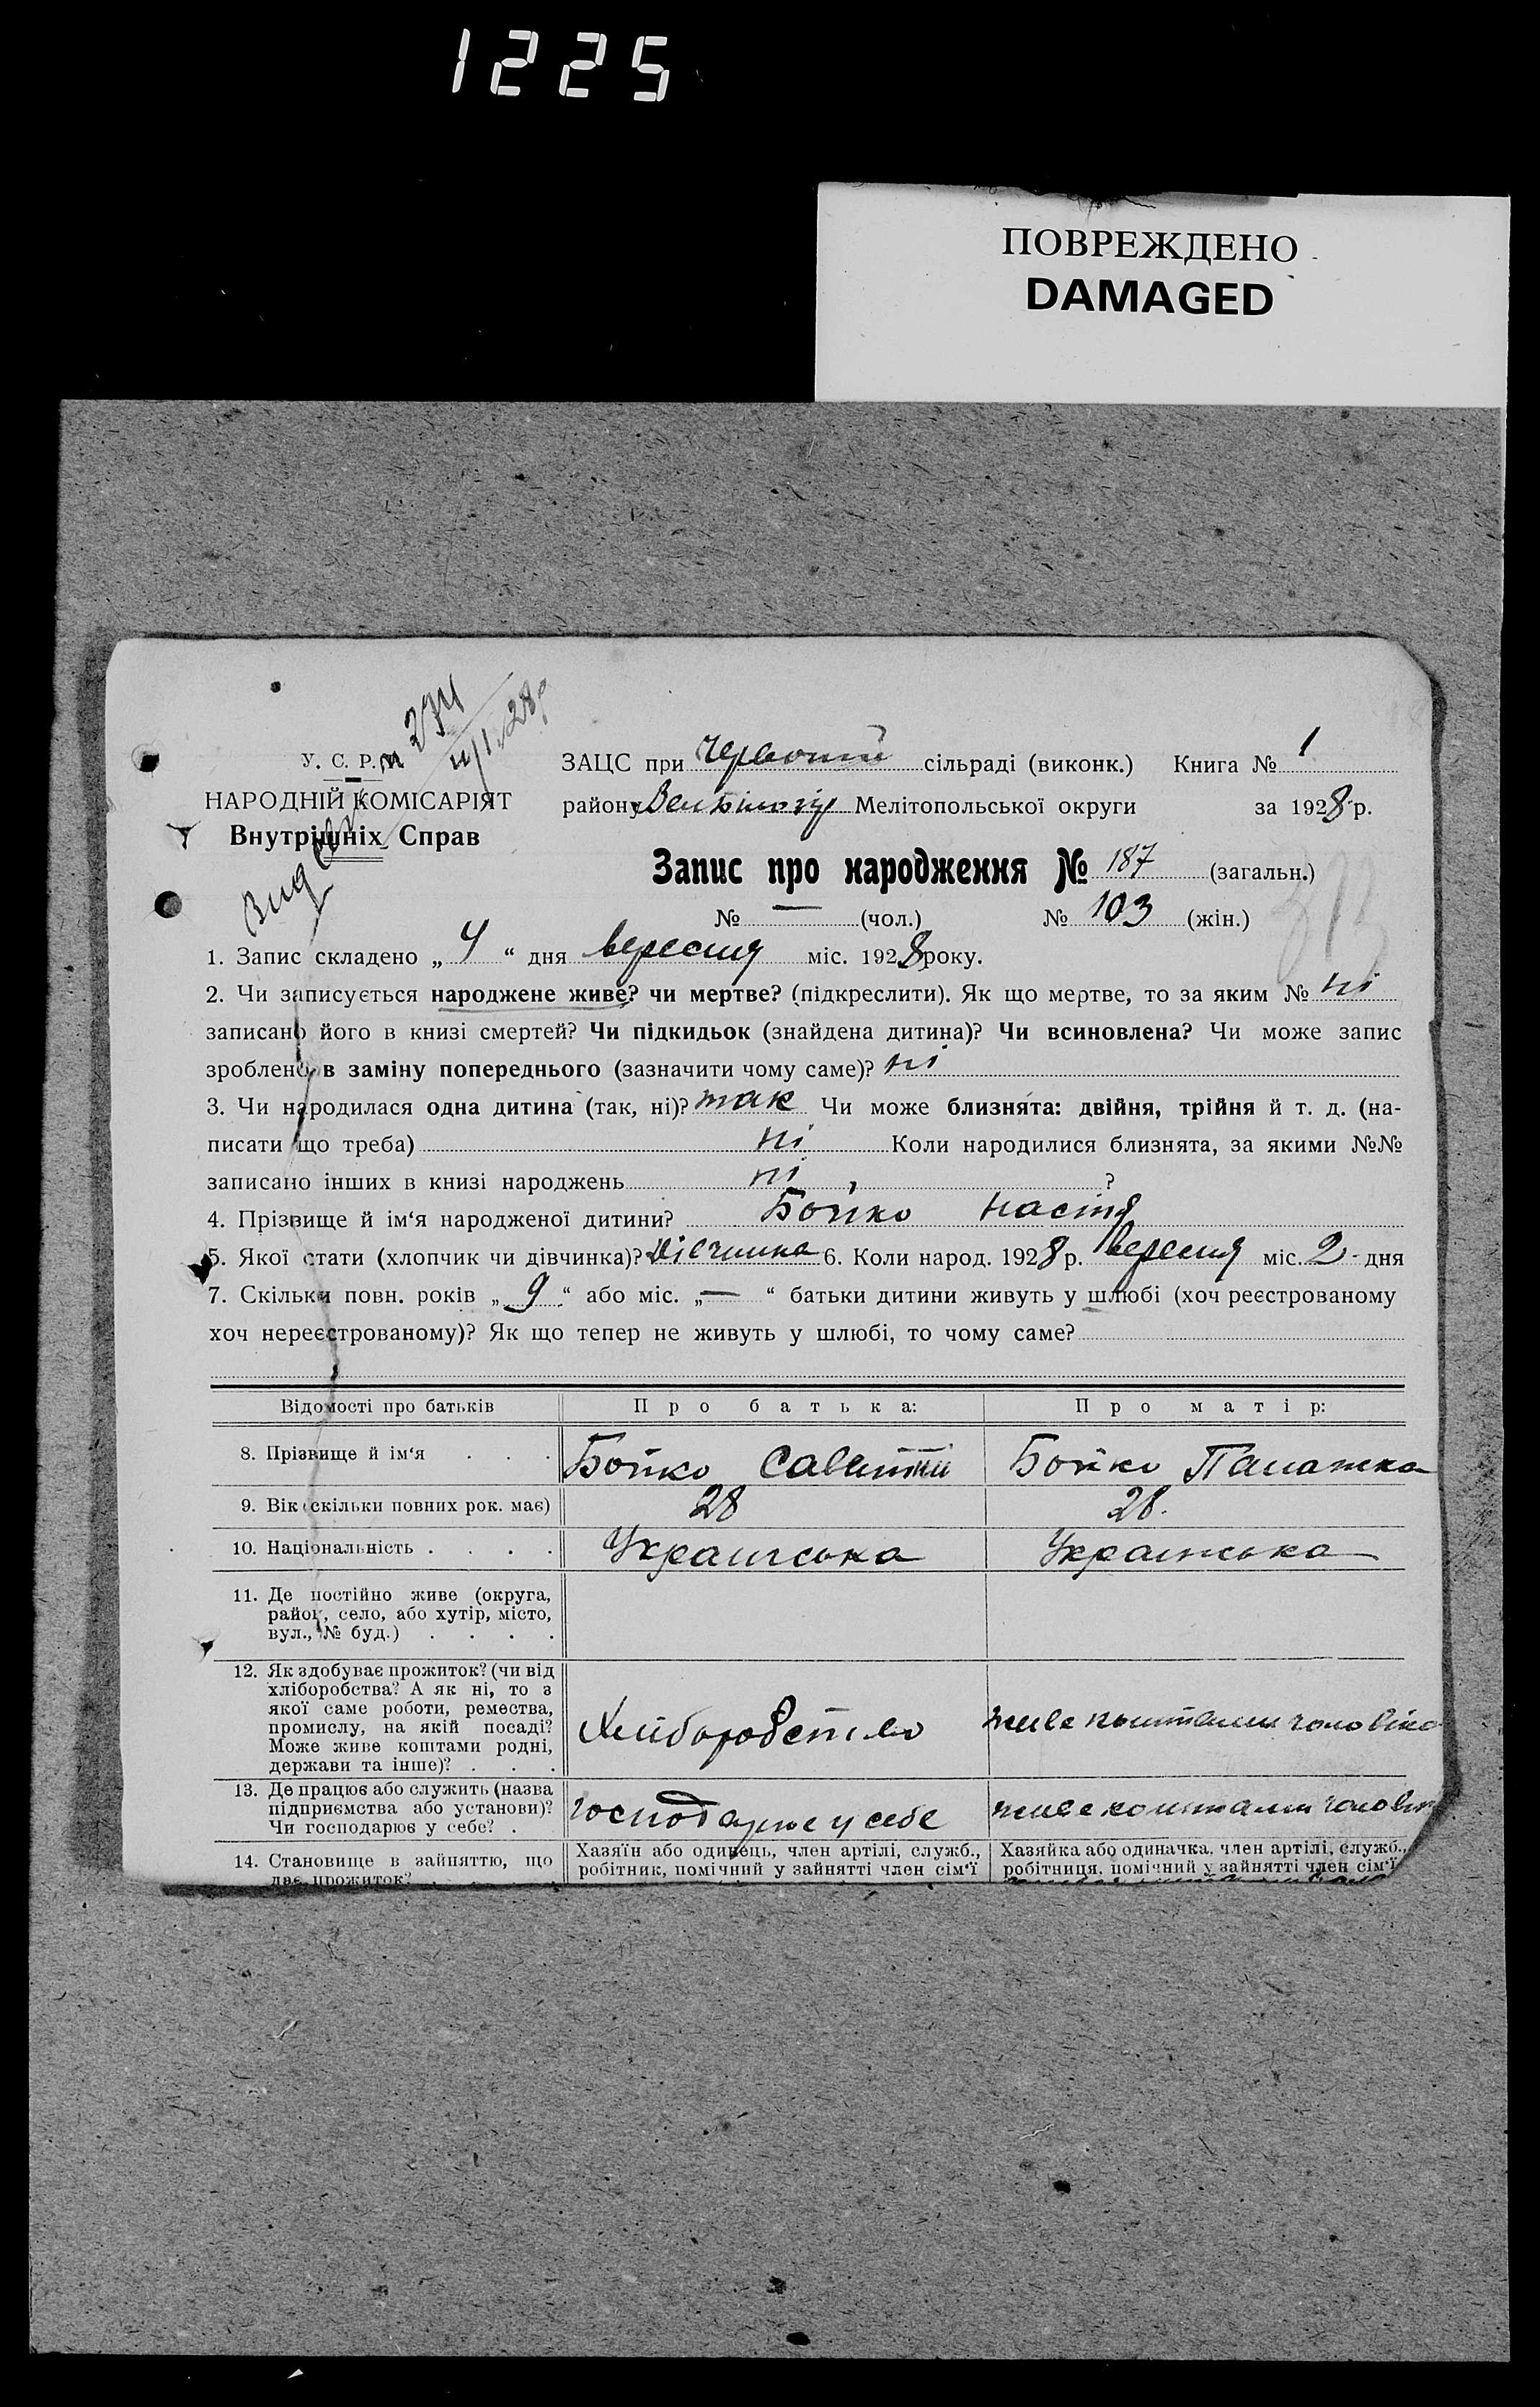 1225
ПОВРЕЖДЕНО
DAMAGED
У. С. Р. Р.
НАРОДНІЙ КОМІСАРІЯТ
Внутрішніх Справ
ЗАЦС при сільраді (виконк.) Книга № 1
району Мелітопольської округи за 1928 р.
Запис про народження № 187 (загальн.)
№ — (чол.) № 103 (жін.)
1. Запис складено „ 4 “ дня вересня міс. 1928 року.
2. Чи записується народжене живе? чи мертве? (підкреслити). Як що мертве, то за яким № ні
записано його в книзі смертей? Чи підкидьок (знайдена дитина)? Чи всиновлена? Чи може запис
зроблено в заміну попереднього (зазначити чому саме)? ні
3. Чи народилася одна дитина (так, ні)? так Чи може близнята: двійня, трійня й т. д. (на-
писати що треба) ні Коли народилися близнята, за якими №№
записано інших в книзі народжень ні ?
4. Прізвище й ім‘я народженої дитини? Бойко Настя
5. Якої стати (хлопчик чи дівчинка)? Дівчинка 6. Коли народ. 1928 р. вересня міс. 2 - дня
7. Скільки повн. років „ 9 “ або міс. „ — “ батьки дитини живуть у шлюбі (хоч реєстрованому
хоч нереєстрованому)? Як що тепер не живуть у шлюбі, то чому саме?
Відомості про батьків Про батька: Про матір:
8. Прізвище й ім‘я . . . Бойко Бойко Панашка
9. Вік (скільки повних рок. має) 28 28.
10. Національність . . . . Українська Українська
11. Де постійно живе (округа,
район, село, або хутір, місто,
вул., № буд.) . . . .
12. Як здобуває прожиток? (чи від
хліборобства? А як ні, то з
якої саме роботи, ремества,
промислу, на якій посаді?
Може живе коштами родні,
держави та інше)? . . .
Хліборобство живе коштами чоловіка
13. Де працює або служить (назва
підприємства або установи)?
Чи господарює у себе? .
господарює у себе живе коштами
14. Становище в зайняттю, що
дає прожиток?
Хазяїн або одинець, член артілі, служб.,
робітник, помічний у зайнятті член сім‘ї
Хазяйка або одиначка, член артілі, служб.,
робітниця, помічний у зайнятті член сім‘ї